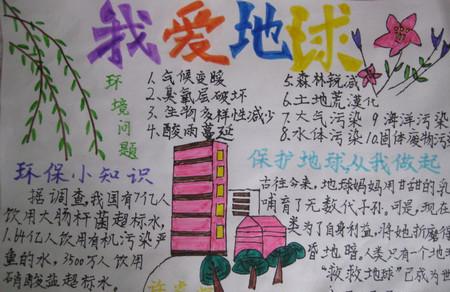 我爱地球
环境问题
1.气候变酸
2.臭氧层破坏
3.生物多样性减少
4.酸雨蔓延
5.森林锐减
6.土地荒漠化
7.大气污染 9海洋污染
8.水体污染 10.固体废物污
环保小知识
据调查,我国有7亿人
饮用大肠杆菌超标水,
1.64亿人饮用有机污染严
重的水,3500万人饮用
硝酸盐超标水。
保护地球,从我做起
古往今来,地球妈妈用甘甜的乳
哺育了无数代子孙。可是,现在
类为了自身利益,将她折磨得
昏地暗。人类只有一个地
“救救地球”已成为世